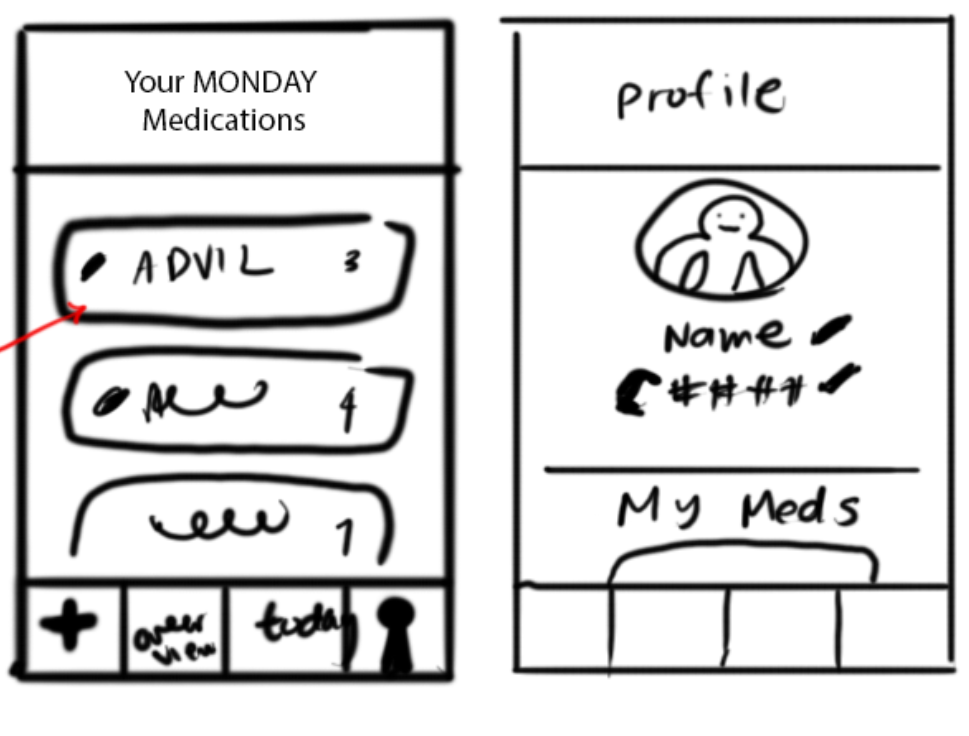 Your MONDAY
Medications
ADVIL 3
4
1
over
view
today
profile
Name
####
My Meds